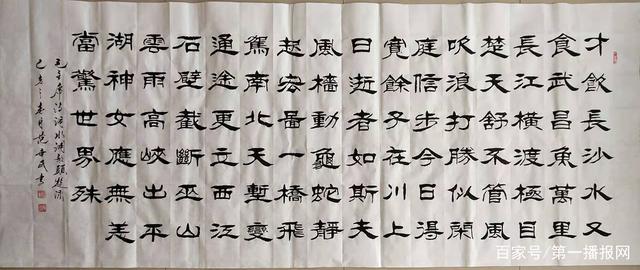 才飲長沙水又
食武昌魚萬里
長江橫渡極目
楚天舒不管風
吹浪打勝似閑
庭信步今日得
寬餘子在川上
曰逝者如斯夫
風檣動龜蛇靜
起宏啚一橋飛
駕南北天塹變
通途更立西江
石壁截斷巫山
雲雨高峽出平
湖神女應無恙
當驚世界殊
毛主席诗词水调歌頭游泳
己亥之春月
百家号/第一播报网